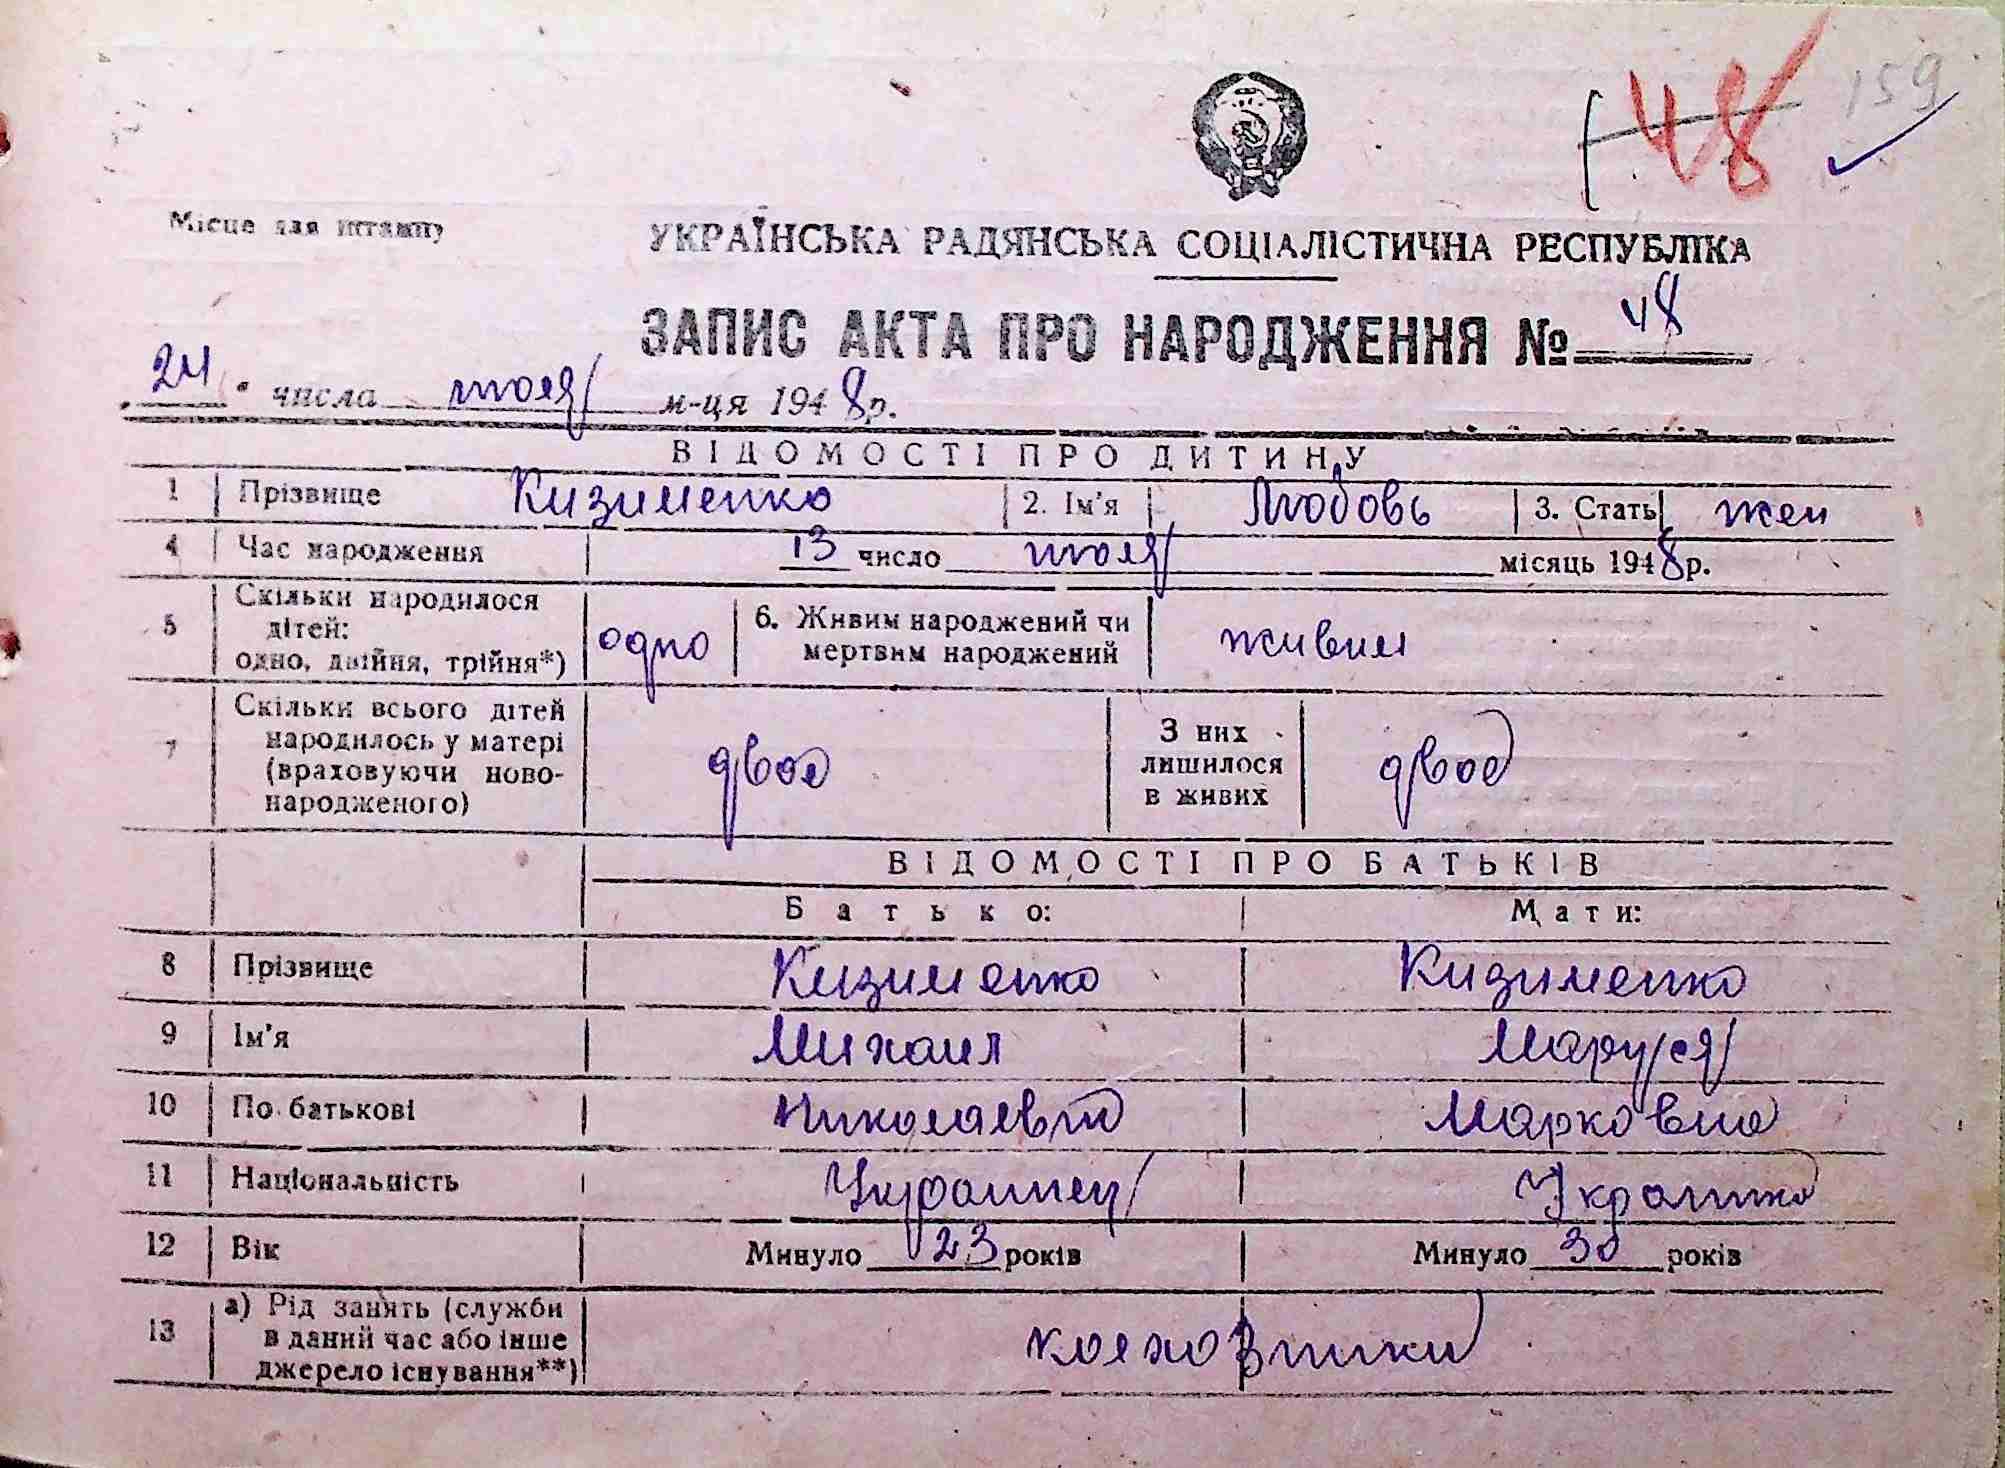 48 159
Місце для штампу
УКРАЇНСЬКА РАДЯНСЬКА СОЦІАЛІСТИЧНА РЕСПУБЛІКА
ЗАПИС АКТА ПРО НАРОДЖЕННЯ № 48
24 числа июля м-ця 1948 р.
ВІДОМОСТІ ПРО ДИТИНУ
1 Прізвище Кизименко 2. Ім'я Любовь 3. Стать жен
4 Час народження 13 число июля місяць 1948 р.
5 Скільки народилося
дітей:
одно, двійня, трійня*) одно 6. Живим народжений чи
мертвим народжений живим
7 Скільки всього дітей
народилось у матері
(враховуючи ново-
народженого) двое З них
лишилося
в живих двое
ВІДОМОСТІ ПРО БАТЬКІВ
Батько: Мати:
8 Прізвище Кизименко Кизименко
9 Ім'я Михаил Маруся
10 По батькові Николаевич Марковна
11 Національність Украинец Украинка
12 Вік Минуло 23 років Минуло 30 років
13 а) Рід занять (служби
в даний час або інше
джерело існування**) колховники